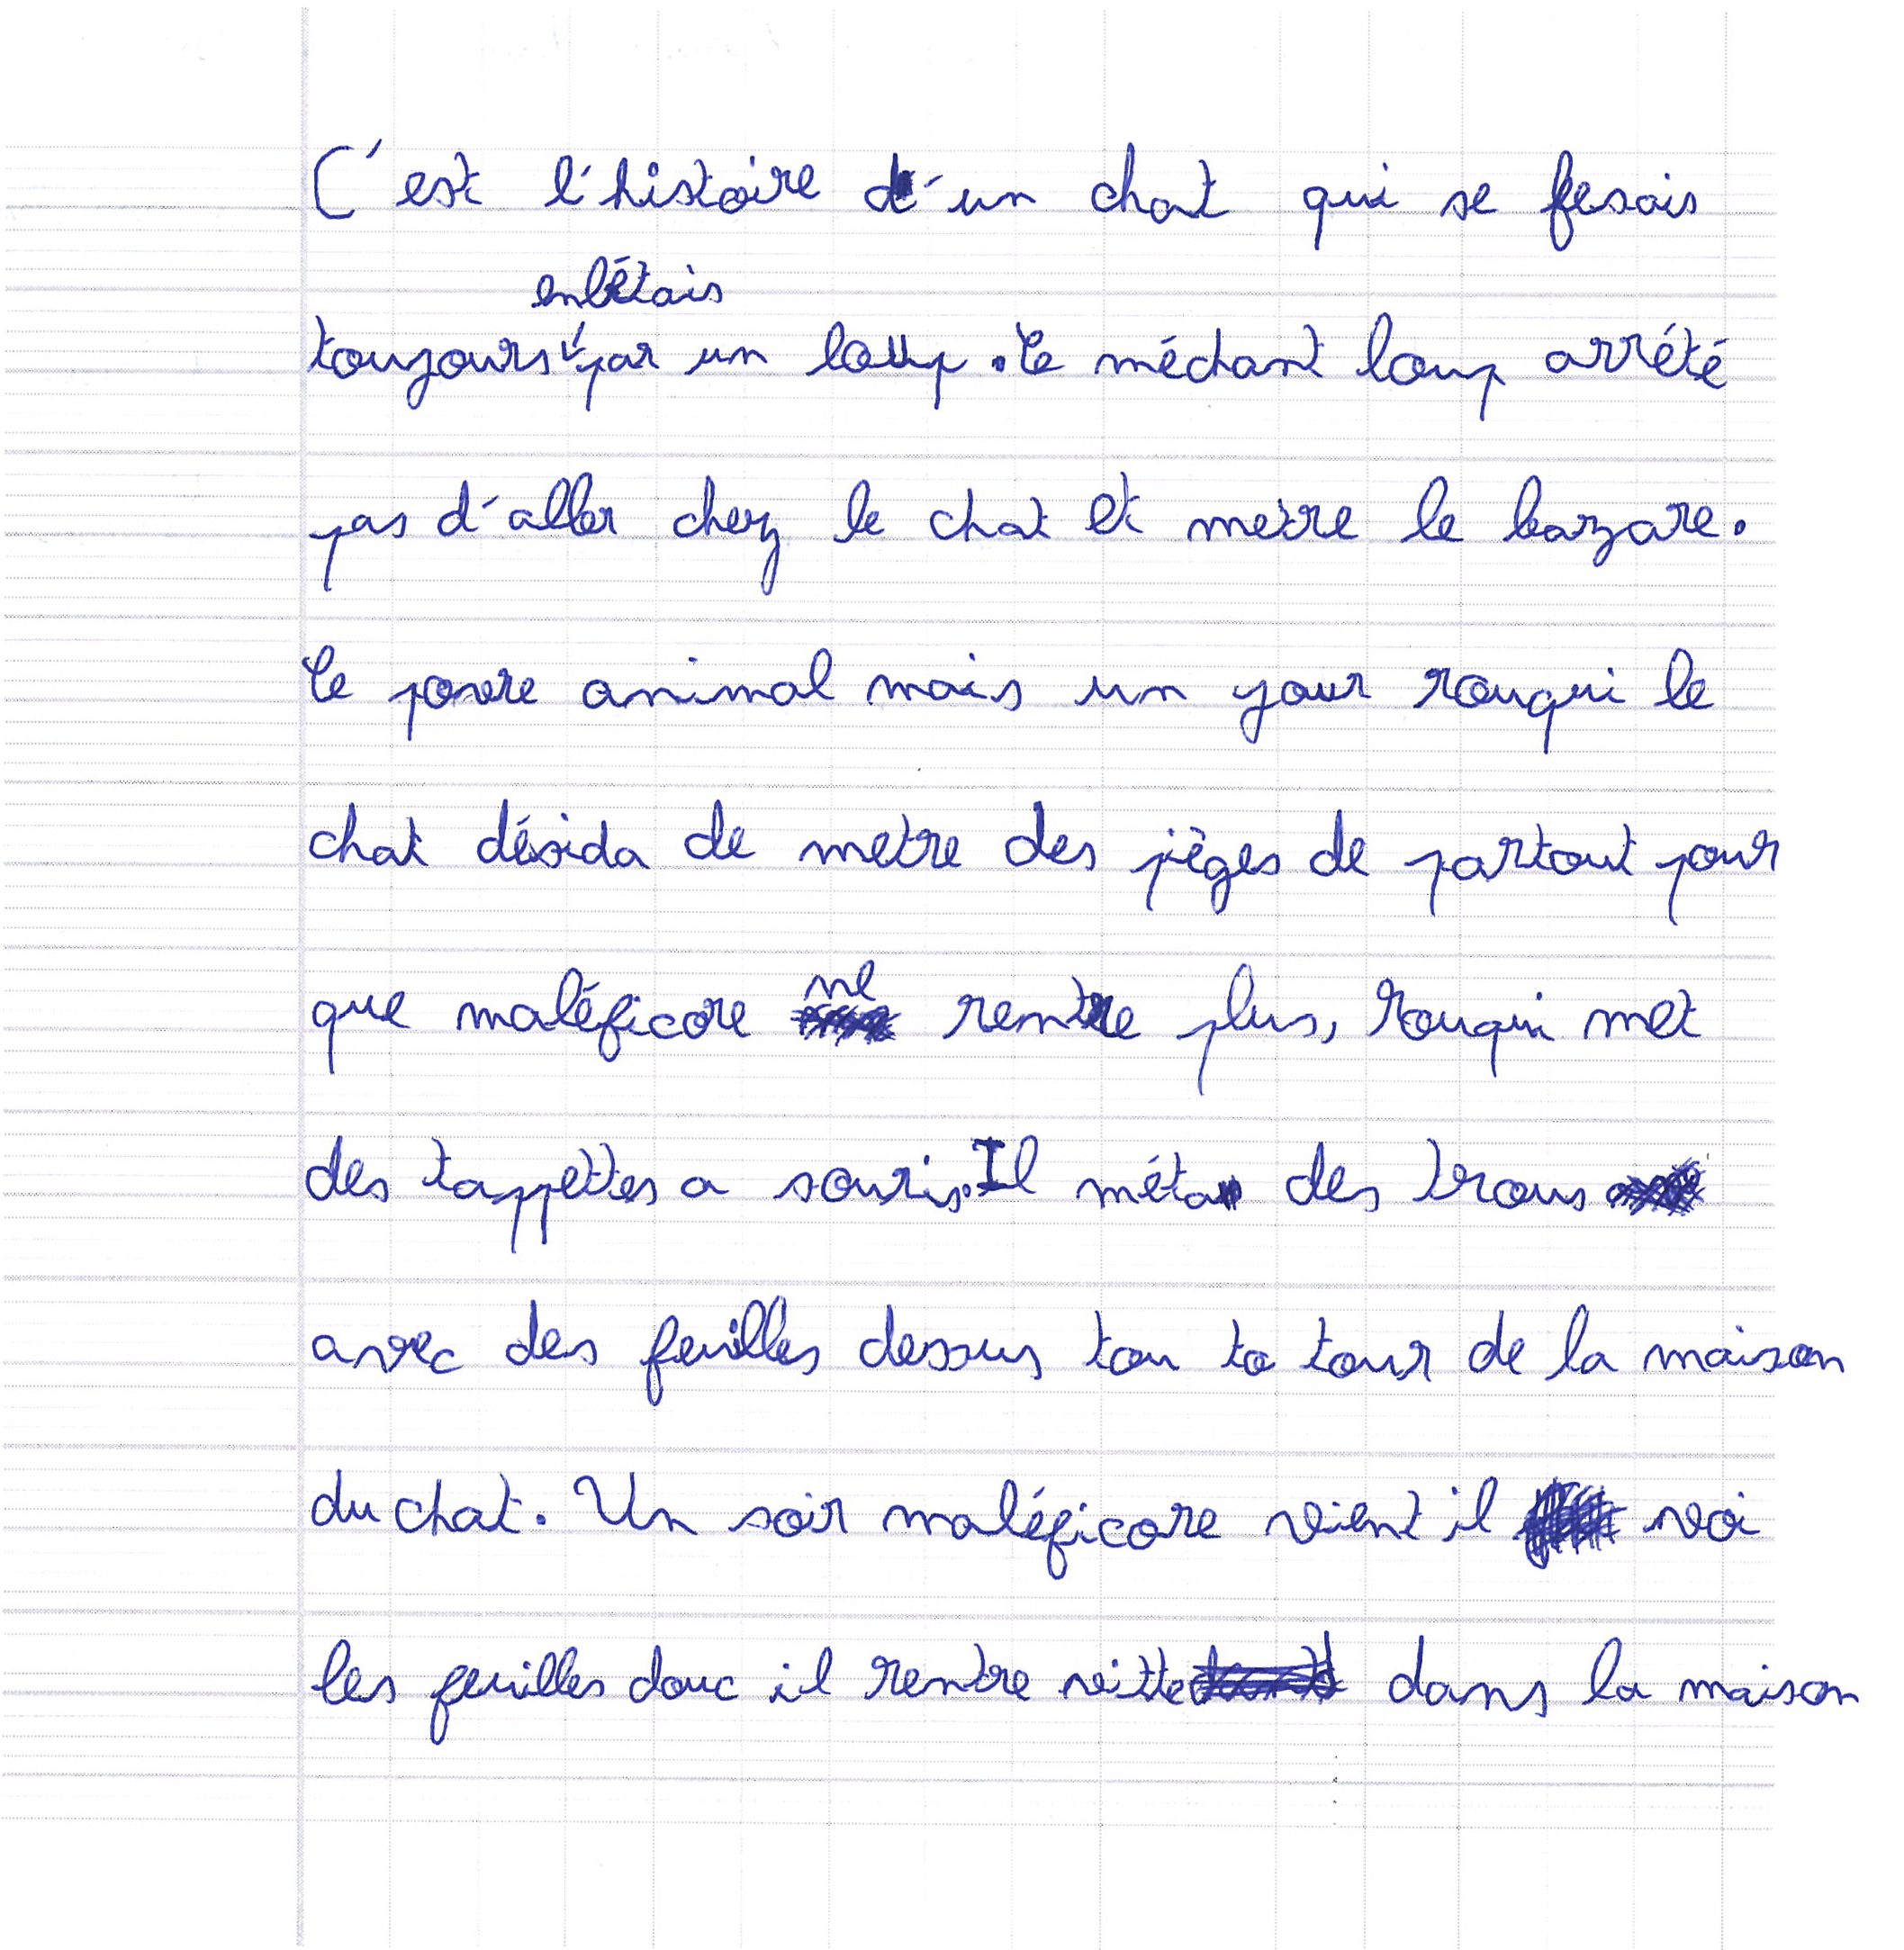 C'est l'histoire d'un chat qui se fesais
enbétais
toujours par un loup. Le méchant loup arrété
pas d'aller chez le chat et metre le bazare.
Le povre animal mais un jour rouqui le
chat désida de metre des pièges de partout pour
que maléficore ne rentre plus, rouqui met
des tappettes a souris. Il méta des trous
avec des feuilles dessus tou to tour de la maison
du chat. Un soir maléficore vient il voi
les feuilles donc il rentre vitte dans la maison